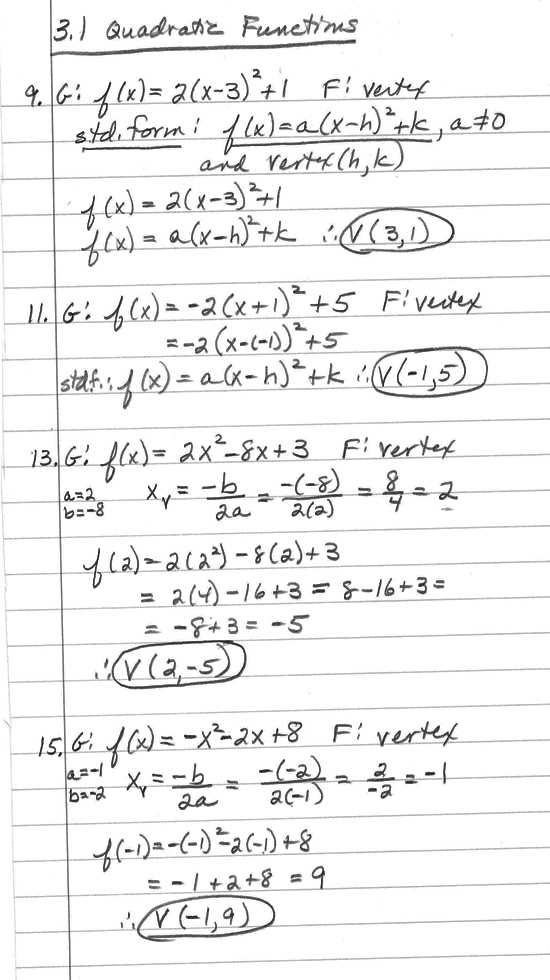 3.1 Quadratic Functions
9. G: f(x) = 2(x-3)²+1 F: vertex
std. form: f(x)=a(x-h)²+k, a≠0
and vertex (h,k)
f(x) = 2(x-3)²+1
f(x) = a(x-h)²+k ∴ V(3,1)
11. G: f(x) = -2(x+1)²+5 F: vertex
= -2(x-(-1))²+5
std f.: f(x) = a(x-h)²+k ∴ V(-1,5)
13. G: f(x) = 2x²-8x+3 F: vertex
a=2 b=-8 xᵥ = -b/2a = -(-8)/2(2) = 8/4 = 2
f(2) = 2(2²) - 8(2)+3
= 2(4) - 16+3 = 8-16+3 =
= -8+3 = -5
∴ V(2,-5)
15. G: f(x) = -x²-2x+8 F: vertex
a=-1 b=-2 xᵥ = -b/2a = -(-2)/2(-1) = 2/-2 = -1
f(-1) = -(-1)²-2(-1)+8
= -1+2+8 = 9
∴ V(-1,9)